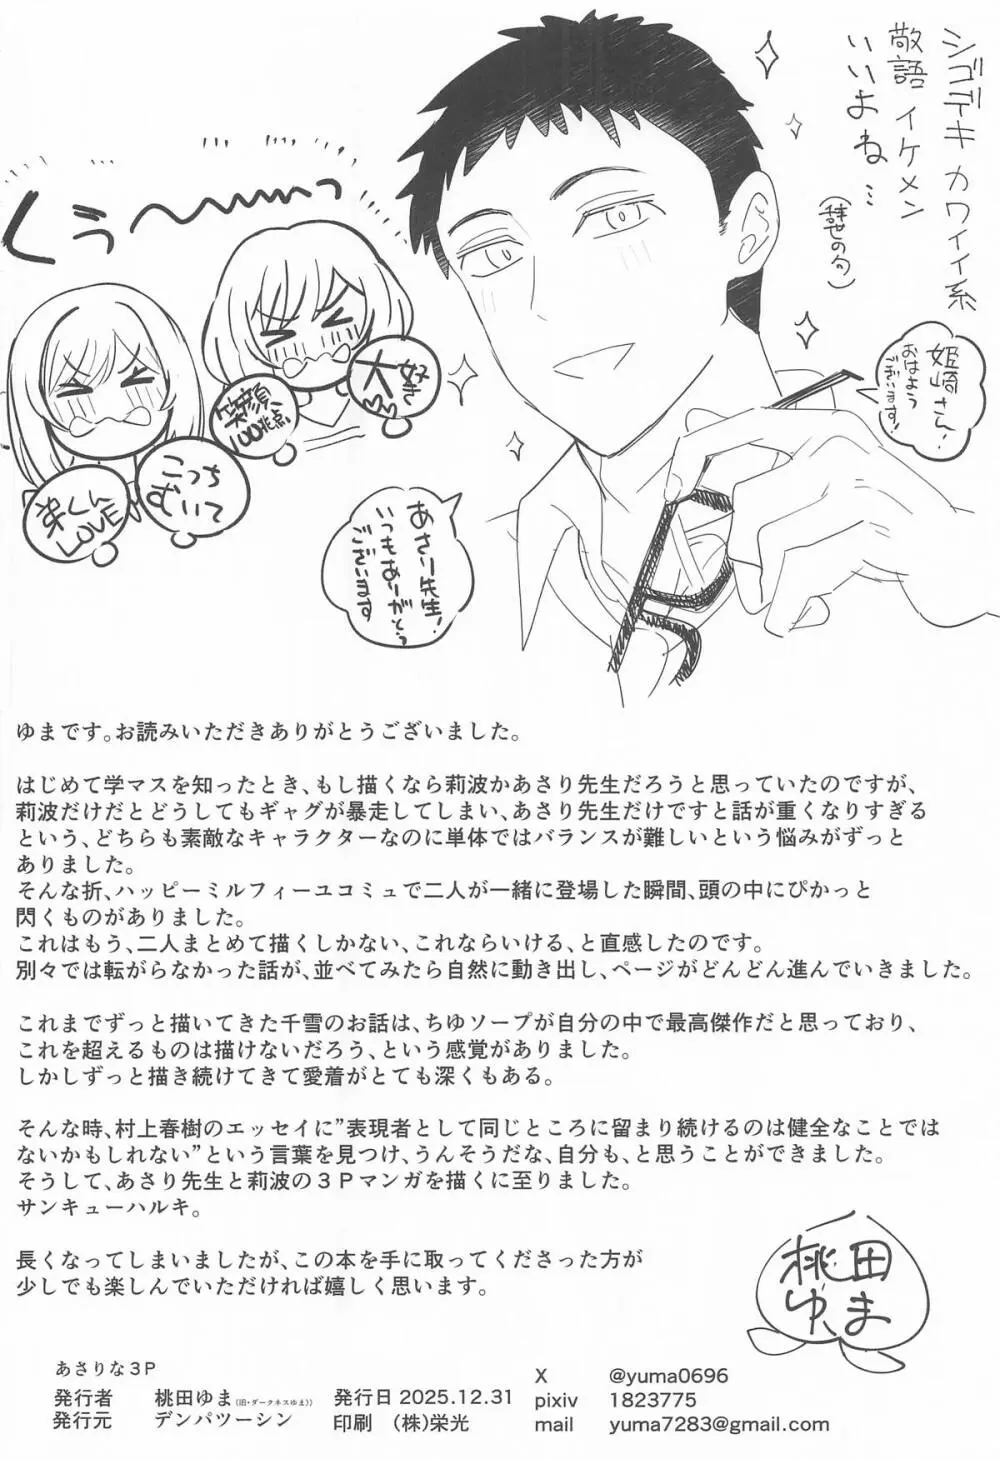 シゴデキカワイイ系
敬語イケメン
いいよね…
(辞世の句)
くぅ〜〜〜っ
姫崎さん!
おはよう
ございます!
大好き
笑顔
100兆点
こっち
むいて
LOVE
あさり先生!
いつもありがとう
ございます
ゆまです。お読みいただきありがとうございました。
はじめて学マスを知ったとき、もし描くなら莉波かあさり先生だろうと思っていたのですが、
莉波だけだとどうしてもギャグが暴走してしまい、あさり先生だけですと話が重くなりすぎる
という、どちらも素敵なキャラクターなのに単体ではバランスが難しいという悩みがずっと
ありました。
そんな折、ハッピーミルフィーユコミュで二人が一緒に登場した瞬間、頭の中にぴかっと
閃くものがありました。
これはもう、二人まとめて描くしかない、これならいける、と直感したのです。
別々では転がらなかった話が、並べてみたら自然に動き出し、ページがどんどん進んでいきました。
これまでずっと描いてきた千雪のお話は、ちゆソープが自分の中で最高傑作だと思っており、
これを超えるものは描けないだろう、という感覚がありました。
しかしずっと描き続けてきて愛着がとても深くもある。
そんな時、村上春樹のエッセイに”表現者として同じところに留まり続けるのは健全なことでは
ないかもしれない”という言葉を見つけ、うんそうだな、自分も、と思うことができました。
そうして、あさり先生と莉波の３Ｐマンガを描くに至りました。
サンキューハルキ。
長くなってしまいましたが、この本を手に取ってくださった方が
少しでも楽しんでいただければ嬉しく思います。
桃田
ゆま
あさりな３Ｐ
発行者 桃田ゆま(旧・ダークネスゆま)) 発行日 2025.12.31
発行元 デンパツーシン 印刷 (株)栄光
X @yuma0696
pixiv 1823775
mail yuma7283@gmail.com